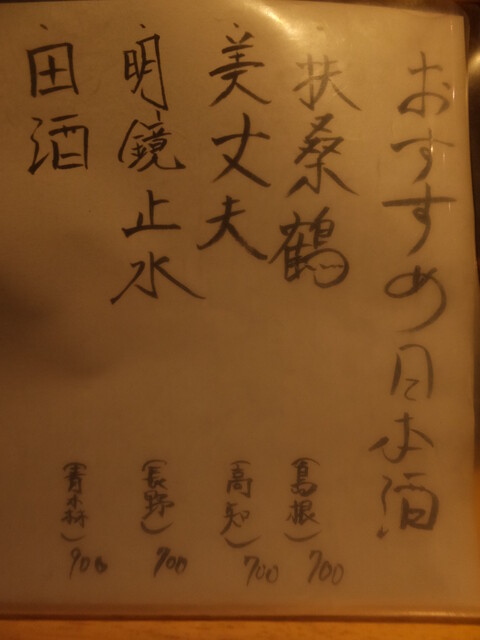 おすすめ日本酒
・扶桑鶴 (島根) 700
・美丈夫 (高知) 700
・明鏡止水 (長野) 700
・田酒 (青森) 900